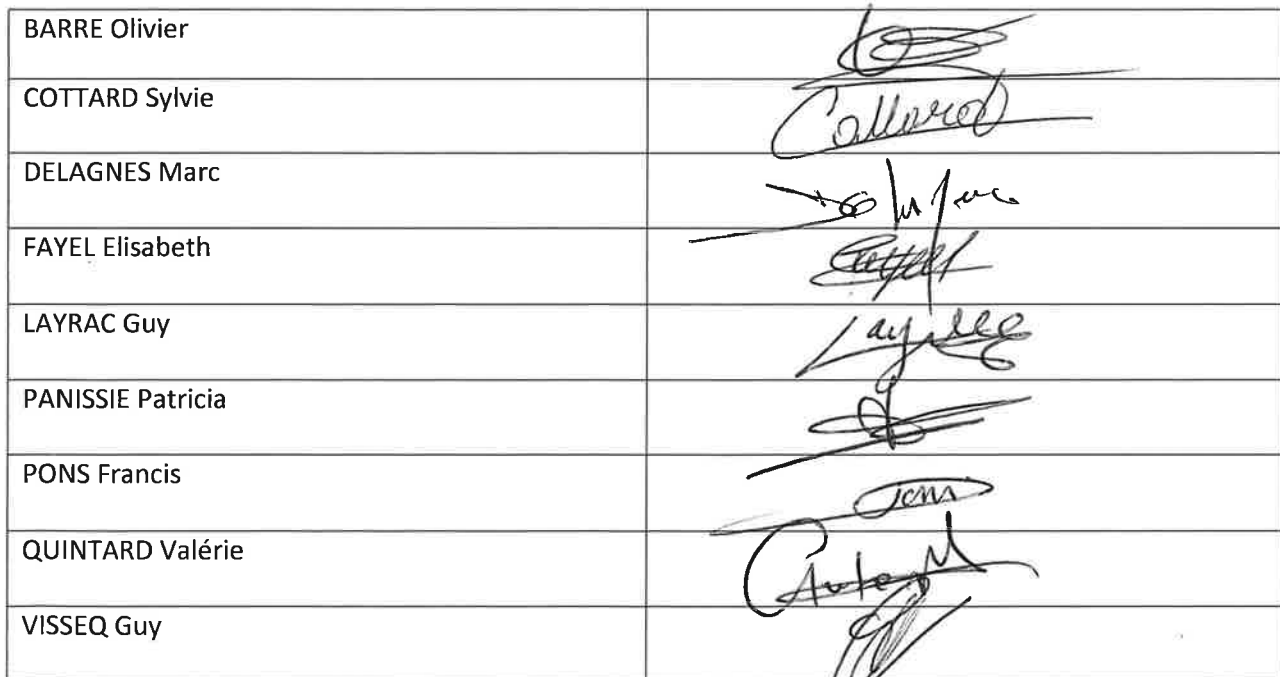 BARRE Olivier
COTTARD Sylvie
Cottard
DELAGNES Marc
FAYEL Elisabeth
LAYRAC Guy
PANISSIE Patricia
PONS Francis
Pons
QUINTARD Valérie
VISSEQ Guy